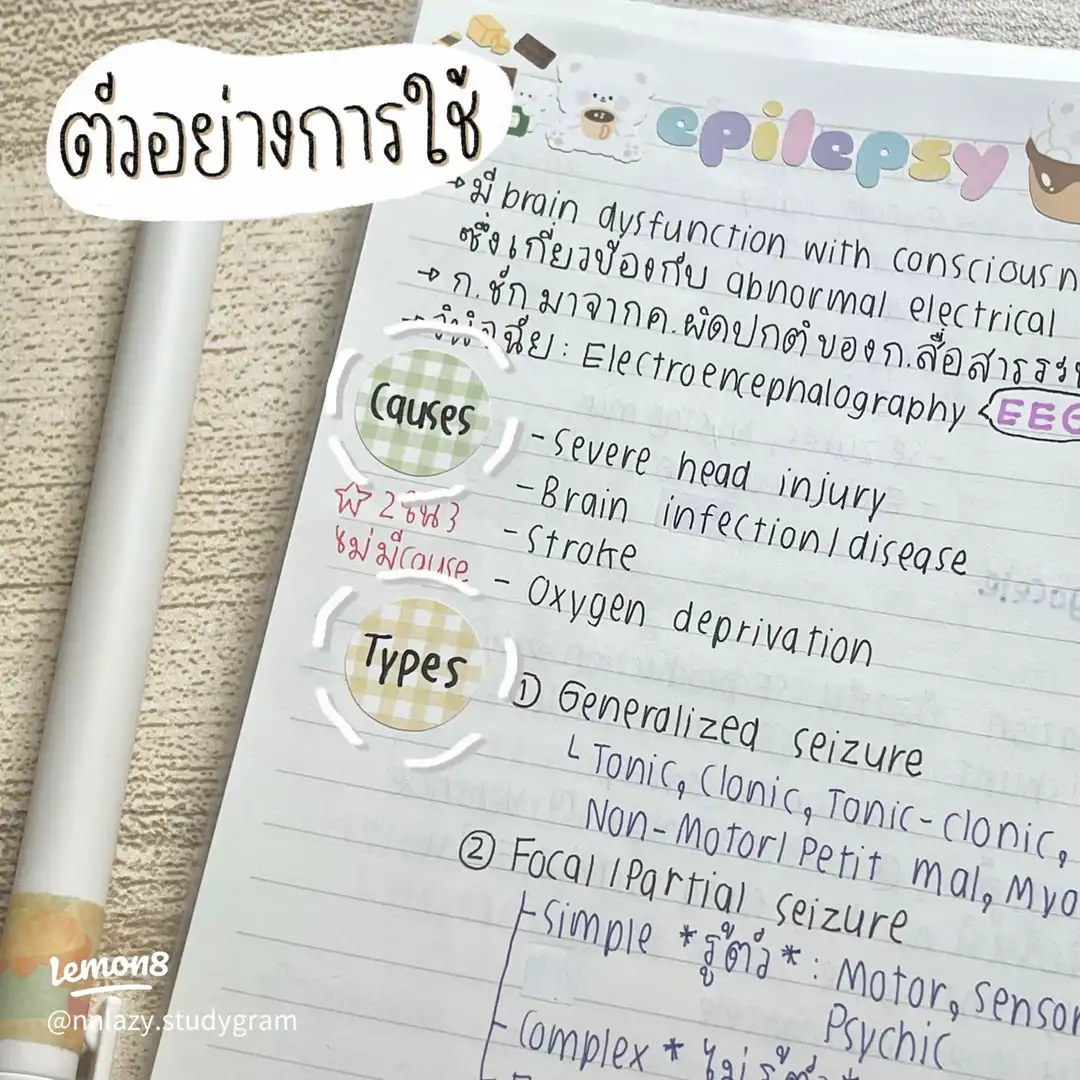 ตัวอย่างการใช้
epilepsy
→ มี brain dysfunction with consciousn
ซึ่งเกี่ยวข้องกับ abnormal electrical
→ ก.ชัก มาจากค.ผิดปกติของก.สื่อสารระ
→ วินิจฉัย : Electroencephalography <EEG
Causes
- Severe head injury
- Brain infection/disease
- Stroke
- Oxygen deprivation
☆ 2 ใน 3
ไม่มี cause
Types
① Generalized seizure
└ Tonic, Clonic, Tonic-clonic,
Non-Motor/Petit mal, Myo
② Focal/Partial seizure
- Simple *รู้ตัว* : Motor, Sensor
Psychic
- Complex *ไม่รู้ตัว*
Lemon8
@nnlazy.studygram